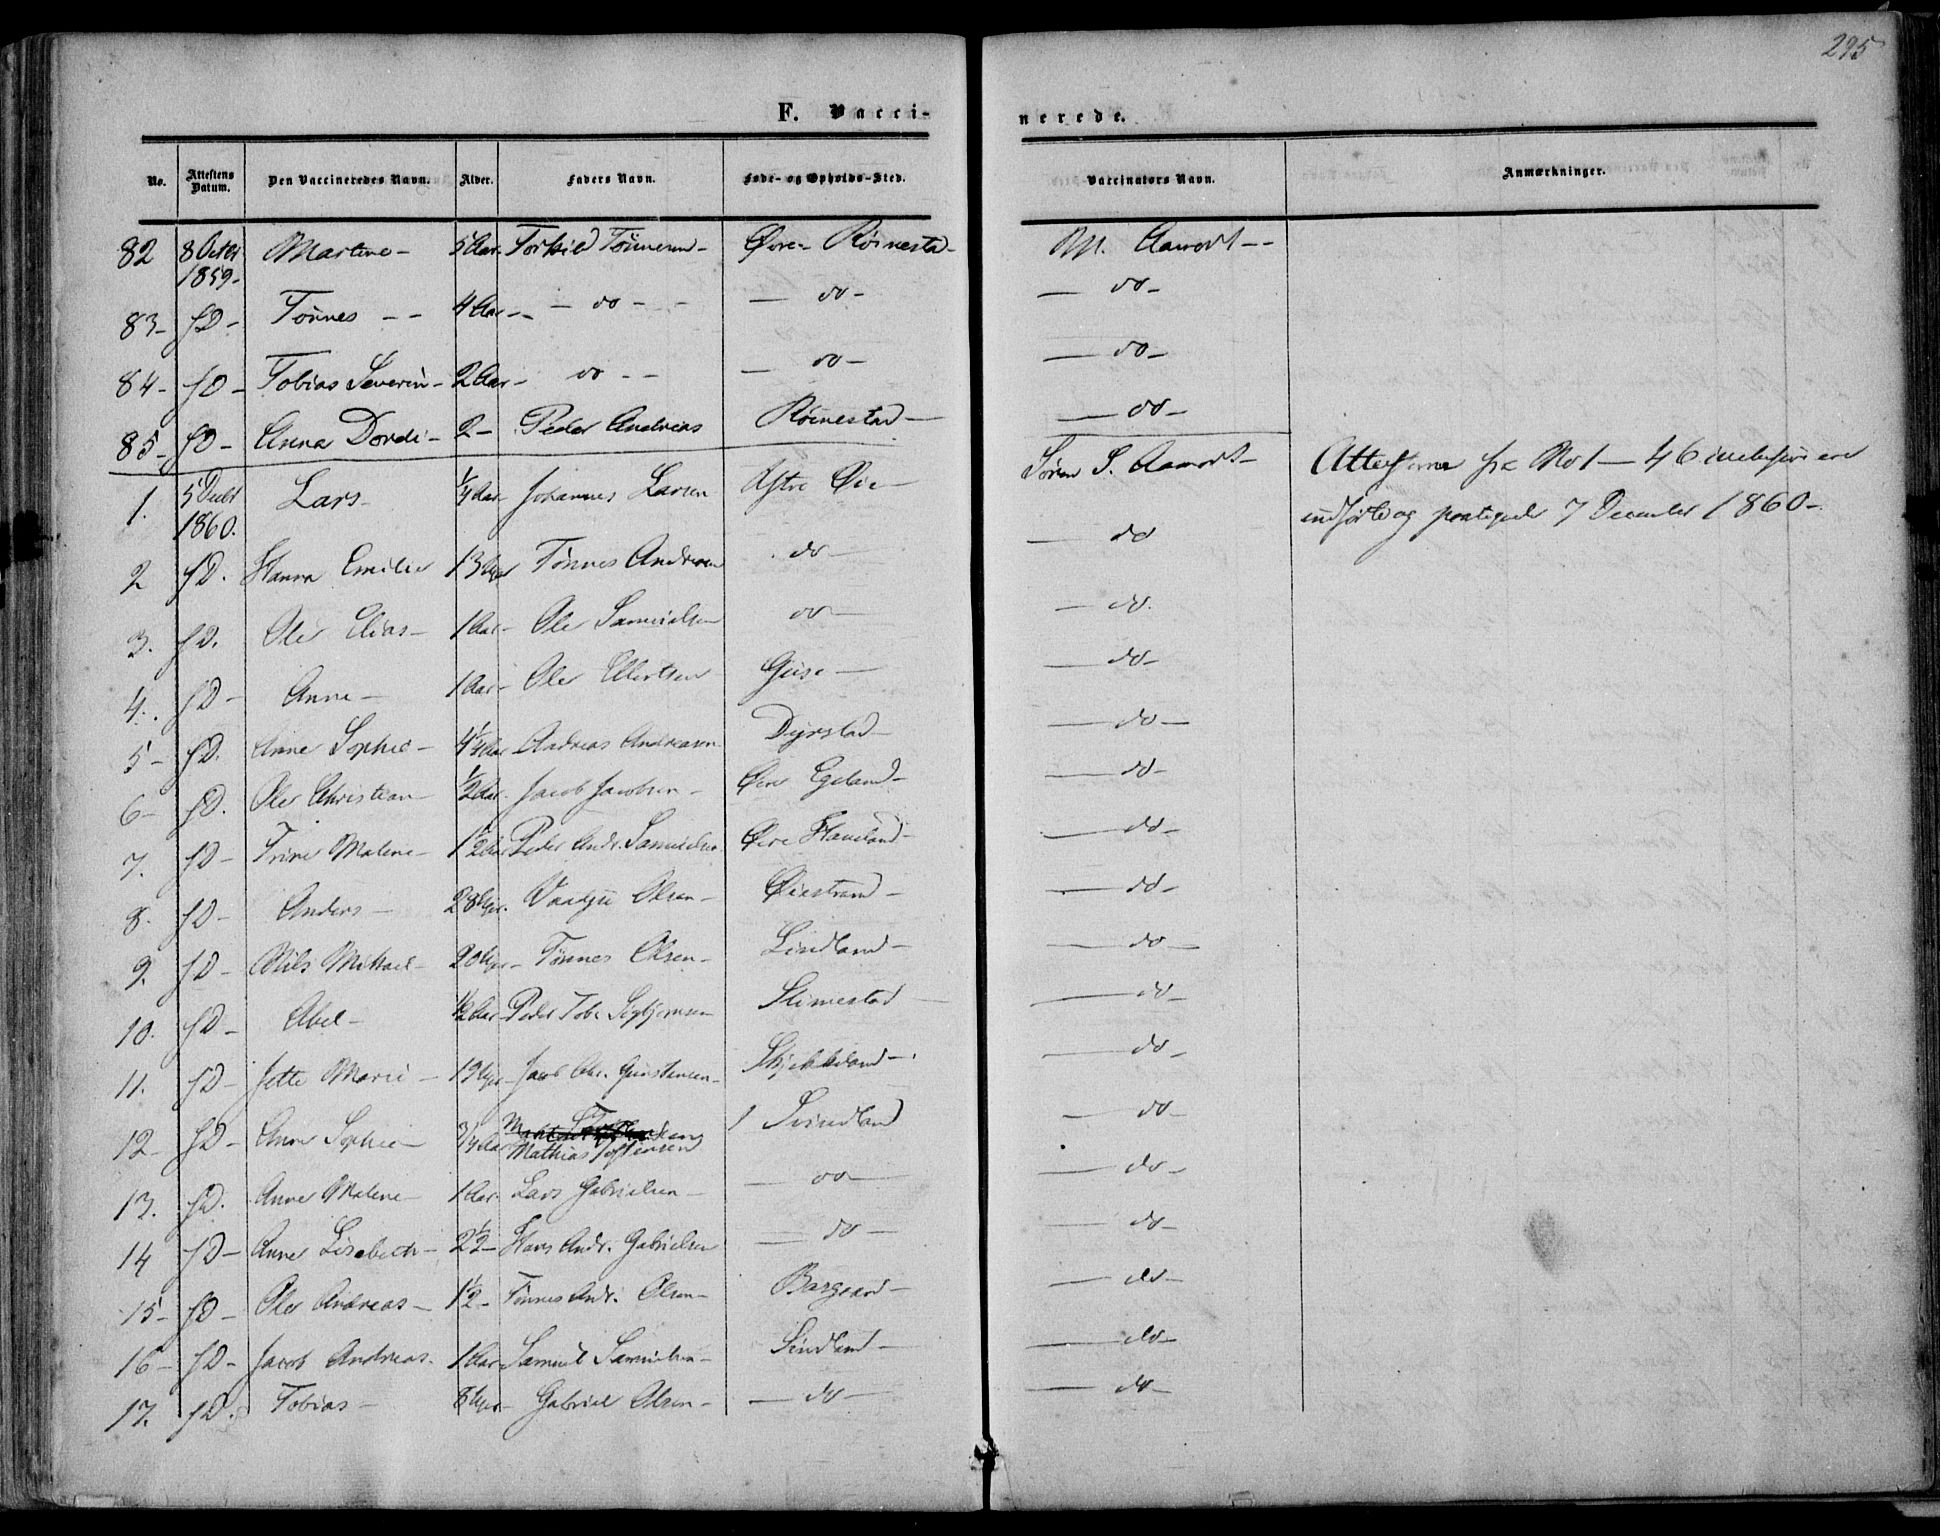 295
F. Vacci- nerede.
No. Attestens Datum. Den Vaccineredes Navn. Alder. Faders Navn. Føde- og Opholds-Sted. Vaccinators Navn. Anmærkninger.
82 8 Octbr 1859- Martine- 5 Aar- Torkild Tønnesen- Øvre- Røinestad-  Aamodt--
83- sD- Tønnes -- 4 Aar-- - do - - - do- - do-
84- sD- Tobias Severin- 2 Aar- do -- - do- - do-
85- sD- Anna Dordi- 2- Peder Andreas Røinestad- - do-
1. 5 Decbr 1860. Lars- 1/4 Aar- Johannes Larsen Østre Øie- Søren S. Aamodt- Attesterne fra No 1- 46 inclusive ere
indførte og 7 December 1860-
2 sD. Hanna Emilie 13 Uger Tønnes Andresen do- - do
3. sD. Ole Elias- 1 Aar- Ole Samuelsen do- - do.
4. sD- Anne- 1 Aar- Ole Ellertsen - - do-
5- sD. Anne Sophie- 4 1/4 Aar Andreas Andreasen Dyrstad- - do-
6- sD. Ole Christian- 1/2 Aar. Jacob Jacobsen- Øvre Egeland- - do-
7. sD- Trine Malene- 1 1/2 Aar Peder Andr. Samuelsen Øvre - do-
8. sD- Anders- 28 Uger. Olsen- Øiestrand- - do-
9. sD- Nils Mikael- 20 Uger- Tønnes Olsen- Lindland- - do-
10. sD- Abel- 1/2 Aar- Peder Tob. Sigbjørnsen Slimestad - do-
11. sD- Jette Marie- 19 Uger- Jacob Chr. - do-
12- sD- Anne Sophie- 3/4 Aar Mathias Torstensen Svindland - do-
13. sD. Anne Malene- 1 Aar- Lars Gabrielsen- - do- - do-
14 sD- Anne Lisabeth- 2 1/2- Hans Andr. Gabrielsen - do- - do-
15- sD- Ole Andreas- 1 1/2- Tønnes Andr. Olsen- - do-
16- sD- Jacob Andreas- 1 Aar Samuel Samuelsen- Sindland- - do-
17. sD. Tobias- 8 Uger- Gabriel Olsen- - do- - do-